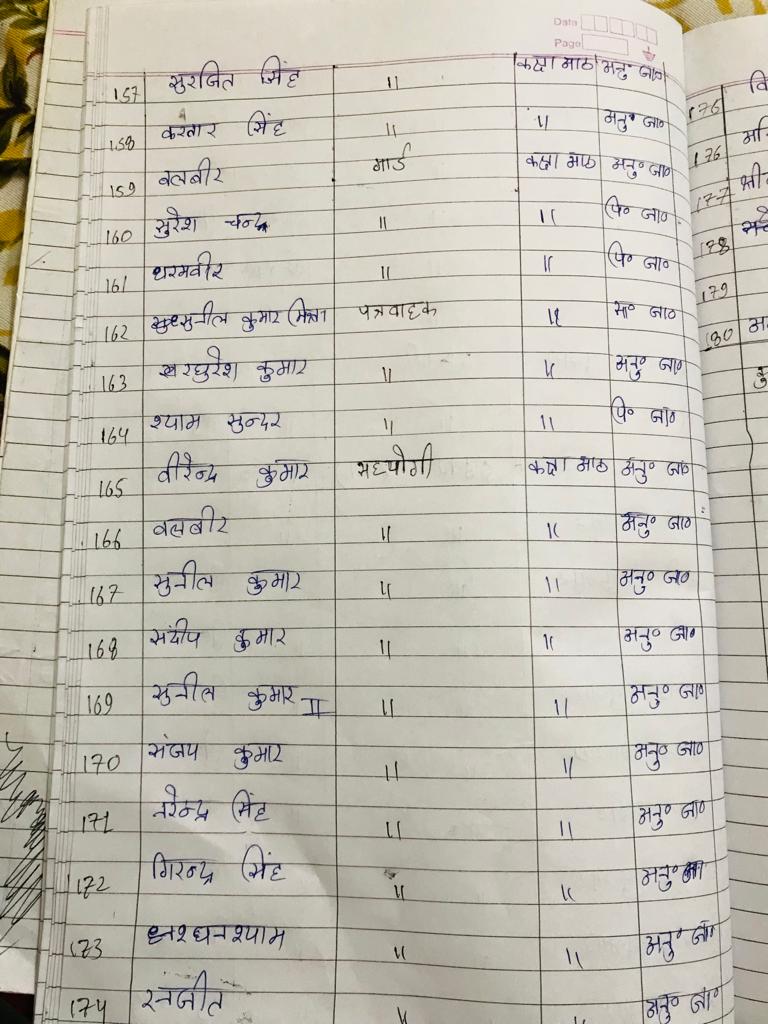 Date
Page
157 सुरजित सिंह " कक्षा आठ अनु० जा०
158 करतार सिंह " " अनु० जा०
159 बलबीर गार्ड कक्षा आठ अनु० जा०
160 सुरेश चन्द्र " " पि० जा०
161 धरमवीर " " पि० जा०
162 सुनील कुमार पत्रवाहक " सा० जा०
163 रघुरेश कुमार " " अनु० जा०
164 श्याम सुन्दर " " पि० जा०
165 वीरेन्द्र कुमार सहयोगी कक्षा आठ अनु० जा०
166 बलबीर " " अनु० जा०
167 सुनील कुमार " " अनु० जा०
168 संदीप कुमार " " अनु० जा०
169 सुनील कुमार II " " अनु० जा०
170 संजय कुमार " " अनु० जा०
171 नरेन्द्र सिंह " " अनु० जा०
172 गिरेन्द्र सिंह " " अनु० जा
173 घनश्याम " " अनु० जा०
174 रनजीत " " अनु० जा०
176
176
177
178
179
180